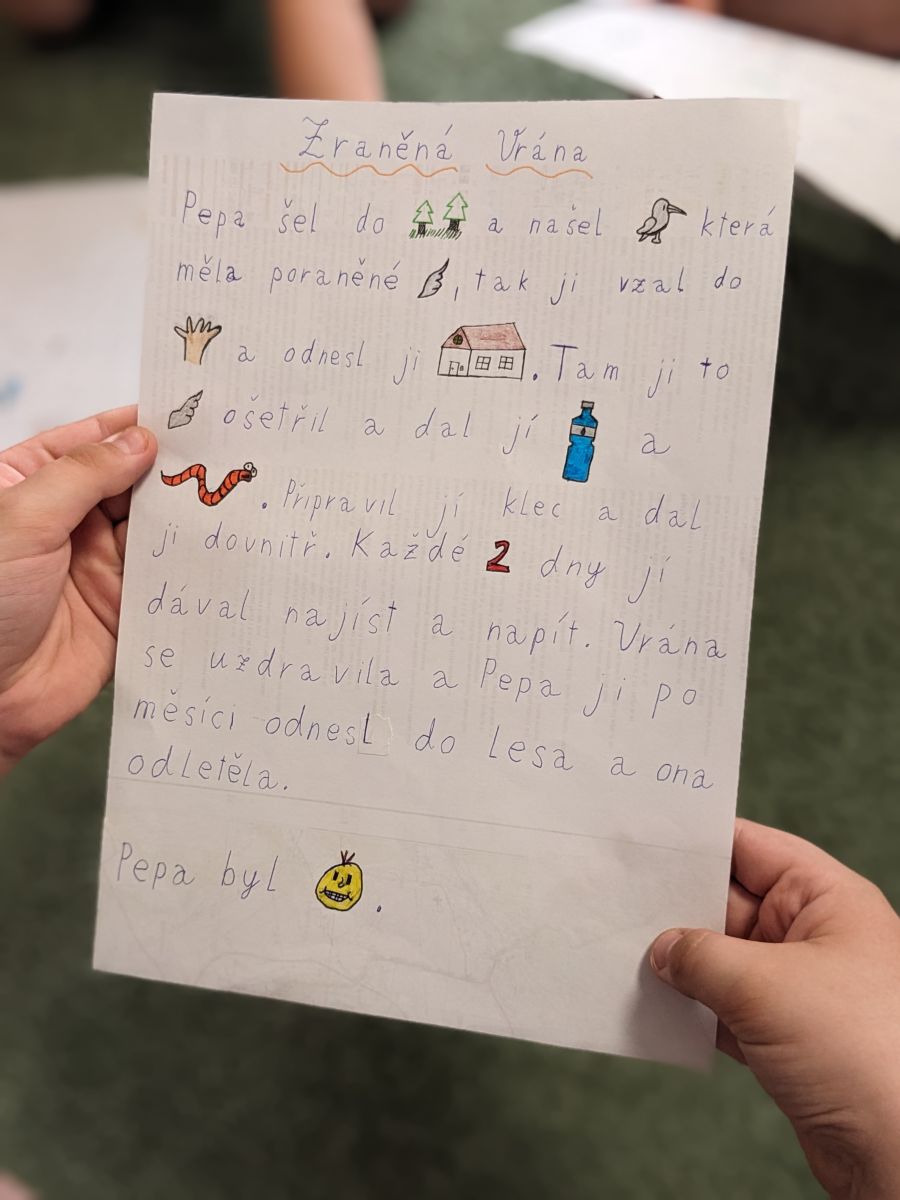 Zraněná Vrána
Pepa šel do a našel která
měla poraněné , tak ji vzal do
a odnesl ji . Tam ji to
ošetřil a dal jí a
. Připravil jí klec a dal
ji dovnitř. Každé 2 dny jí
dával najíst a napít. Vrána
se uzdravila a Pepa ji po
měsíci odnesl do lesa a ona
odletěla.
Pepa byl .